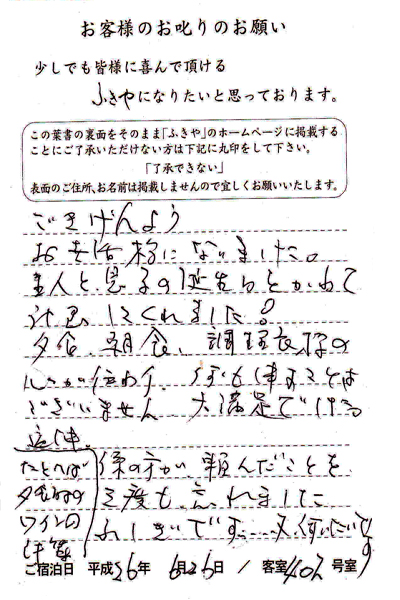 お客様のお叱りのお願い
少しでも皆様に喜んで頂ける
ふきやになりたいと思っております。
この葉書の裏面をそのまま「ふきや」のホームページに掲載する
ことにご了承いただけない方は下記に丸印をして下さい。
「了承できない」
表面のご住所、お名前は掲載しませんので宜しくお願いいたします。
ごきげんよう
お世話様になりました。
主人と息子の誕生日とかねて
計画してくれました!
夕食、朝食、調理長様の
心が伝わり、何も申すことは
ございません 大満足でける
追伸。
係の方が、頼んだことを
二度も、忘れました
ふしぎです……又伺いたいです
たとへば
夕食時の
ワインの
件等
ご宿泊日 平成26年 6月26日 / 客室402号室